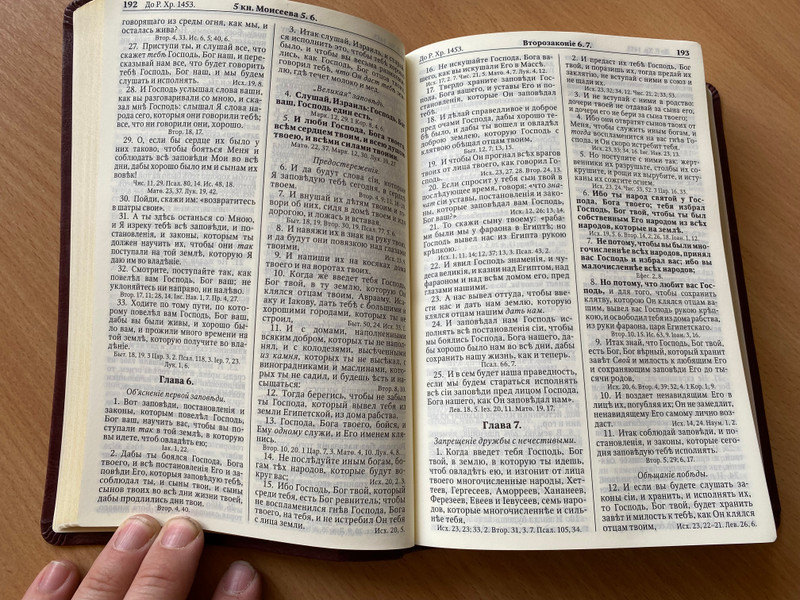 192 До Р. Хр. 1453.
5 кн. Моисеева 5. 6.
говорящаго из среды огня, как мы, и
осталась жива?
Втор. 4, 33. Ис. 6, 5; 40, 6.
27. Приступи ты, и слушай все, что
скажет тебѣ Господь, Бог наш, и пере-
сказывай нам все, что будет говорить
тебѣ Господь, Бог наш, и мы будем
слушать и исполнять.
Исх. 19, 8.
28. И Господь услышал слова ваши,
как вы разговаривали со мною, и ска-
зал мнѣ Господь: слышал Я слова на-
рода сего, которыя они говорили тебѣ;
все, что ни говорили они, хорошо.
Втор. 18, 17.
29. О, если бы сердце их было у
них таково, чтобы бояться Меня и
соблюдать всѣ заповѣди Мои во всѣ
дни, дабы хорошо было им и сынам их
вовѣк!
Чис. 11, 29. Псал. 80, 14. Ис. 48, 18.
Матѳ. 23, 37. Лук. 19, 42.
30. Пойди, скажи им: «возвратитесь
в шатры свои».
31. А ты здѣсь останься со Мною,
и Я изреку тебѣ всѣ заповѣди, и по-
становленія, и законы, которым ты
должен научить их, чтобы они так
поступали на той землѣ, которую Я
даю им во владѣніе.
32. Смотрите, поступайте так, как
повелѣл вам Господь, Бог ваш; не
уклоняйтесь ни направо, ни налѣво:
Втор. 17, 11; 28, 14. Іис. Нав. 1, 7. Пр. 4, 27.
33. Ходите по тому пути, по кото-
рому повелѣл вам Господь, Бог ваш,
дабы вы были живы, и хорошо бы-
ло вам, и прожили много времени на
той землѣ, которую получите во вла-
дѣніе.
Быт. 18, 19. 3 Цар. 3, 2. Псал. 118, 3. Іер. 7, 23.
Лук. 1, 6.
Глава 6.
Объясненіе первой заповѣди.
1. Вот заповѣди, постановленія и
законы, которым повелѣл Господь,
Бог ваш, научить вас, чтобы вы по-
ступали так в той землѣ, в которую
вы идете, чтоб овладѣть ею;
Іак. 1, 22.
2. Дабы ты боялся Господа, Бога
твоего, и всѣ постановленія Его и за-
повѣди Его, которыя заповѣдую тебѣ,
соблюдал ты, и сыны твои, и сыны
сынов твоих во всѣ дни жизни твоей,
дабы продлились дни твои.
Втор. 4, 40.
3. Итак слушай, Израиль, и старай-
ся исполнить это, чтобы тебѣ хорошо
было, и чтобы вы весьма размножи-
лись, как Господь, Бог отцов твоих,
говорил тебѣ, что Он даст тебѣ зем-
лю, гдѣ течет молоко и мед.
„Великая" заповѣдь.
4. Слушай, Израиль: Господь, Бог
ваш, Господь един есть;
Марк. 12, 29. 1 Кор. 8, 4. 6.
5. И люби Господа, Бога твоего,
всѣм сердцем твоим, и всею душею
твоею, и всѣми силами твоими.
Матѳ. 22, 37. Марк. 12, 30. Лук. 10, 27.
Предостереженія.
6. И да будут слова сіи, которыя
Я заповѣдую тебѣ сегодня, в сердцѣ
твоем.
7. И внушай их дѣтям твоим, и го-
вори об них, сидя в домѣ твоем и идя
дорогою, и ложась и вставая.
Быт. 18, 19. Втор. 4, 9. Псал. 77, 5.
8. И навяжи их в знак на руку твою,
и да будут они повязкою над глазами
твоими,
9. И напиши их на косяках дома
твоего и на воротах твоих.
10. Когда же введет тебя Господь,
Бог твой, в ту землю, которую Он
клялся отцам твоим, Аврааму, Иса-
аку и Іакову, дать тебѣ с большими и
хорошими городами, которых ты не
строил,
Быт. 50, 24. Исх. 33, 1.
11. И с домами, наполненными
всяким добром, которых ты не напол-
нял, и с колодезями, высѣченными
из камня, которых ты не высѣкал, с
виноградниками и маслинами, кото-
рых ты не садил, и будешь ѣсть и на-
сыщаться:
Втор. 8, 10.
12. Тогда берегись, чтобы не забыл
ты Господа, который вывел тебя из
земли Египетской, из дома рабства.
13. Господа, Бога твоего, бойся, и
Ему одному служи, и Его именем кля-
нись.
Втор. 10, 20. 1 Цар. 7, 3. Матѳ. 4, 10. Лук. 4, 8.
14. Не послѣдуйте иным богам, бо-
гам тѣх народов, которые будут во-
круг вас;
Исх. 20, 2. 3.
15. Ибо Господь, Бог твой, который
среди тебя, есть Бог ревнитель; чтобы
не воспламенился гнѣв Господа, Бога
твоего, на тебя, и не истребил Он тебя
с лица земли.
Исх. 20, 5.
До Р. Хр. 1453.
Второзаконіе 6. 7.
193
16. Не искушайте Господа, Бога ва-
шего, как вы искушали Его в Массѣ.
Исх. 17, 2. 7. Чис. 21, 5. Матѳ. 4, 7. Лук. 4, 12.
17. Твердо храните заповѣди Го-
спода, Бога вашего, и уставы Его и по-
становленія, которые Он заповѣдал
тебѣ;
18. И дѣлай справедливое и доброе
пред очами Господа, дабы хорошо те-
бѣ было, и дабы ты вошел и овладѣл
доброю землею, которую Господь с
клятвою обѣщал отцам твоим,
Быт. 12, 7; 13, 15.
19. И чтобы Он прогнал всѣх врагов
твоих от лица твоего, как говорил Го-
сподь.
Исх. 23, 27. 28. Втор. 24, 13.
20. Если спросит у тебя сын твой в
послѣдующее время, говоря: «что зна-
чат сіи уставы, постановленія и зако-
ны, которые заповѣдал вам Господь,
Бог ваш?»
Исх. 12, 26; 13, 14.
21. То скажи сыну твоему: «раба-
ми были мы у фараона в Египтѣ; но
Господь вывел нас из Египта рукою
крѣпкою.
Исх. 1, 11. 14; 12, 37; 13, 3. Псал. 43, 2.
22. И явил Господь знаменія, и чу-
деса великія, и казни над Египтом, над
фараоном и над всѣм домом его, пред
глазами нашими.
23. А нас вывел оттуда, чтобы вве-
сти нас и дать нам землю, которую
клялся отцам нашим дать нам.
24. И заповѣдал нам Господь ис-
полнять всѣ постановленія сіи, чтобы
мы боялись Господа, Бога нашего, да-
бы хорошо было нам во всѣ дни, дабы
сохранить нашу жизнь, как и теперь.
Псал. 66, 7.
25. И в сем будет наша праведность,
если мы будем стараться исполнять
всѣ сіи заповѣди пред лицом Господа,
Бога нашего, как Он заповѣдал нам».
Лев. 18, 5. Іез. 20, 11. Матѳ. 19, 17.
Глава 7.
Запрещеніе дружбы с нечестивыми.
1. Когда введет тебя Господь, Бог
твой, в землю, в которую ты идешь,
чтоб овладѣть ею, и изгонит от лица
твоего многочисленные народы, Хет-
теев, Гергесеев, Аморреев, Хананеев,
Ферезеев, Евеев и Іевусеев, семь наро-
дов, которые многочисленнѣе и силь-
нѣе тебя,
Исх. 23, 23; 33, 2. Втор. 31, 3. 7. Псал. 105, 34.
2. И предаст их тебѣ Господь, Бог
твой, и поразишь их, тогда предай их
заклятію, не вступай с ними в союз и
не щади их;
Исх. 23, 32; 34, 12. Чис. 21, 2; 33, 55.
3. И не вступай с ними в родство:
дочери твоей не отдавай за сына его,
и дочери его не бери за сына твоего;
4. Ибо они отвратят сынов твоих от
Меня, чтобы служить иным богам, и
тогда воспламенится на вас гнѣв Го-
спода, и Он скоро истребит тебя.
Исх. 23, 33; 34, 16. Іис. Нав. 23, 13.
5. Но поступите с ними так: жерт-
венники их разрушьте, столбы их со-
крушите, и рощи их вырубите, и исту-
каны их сожгите огнем.
Исх. 23, 24. Чис. 33, 52. 3 Цар. 16, 33.
6. Ибо ты народ святой у Го-
спода, Бога твоего; тебя избрал
Господь, Бог твой, чтобы ты был
собственным Его народом из всѣх
народов, которые на землѣ.
7. Не потому, чтобы вы были мно-
гочисленнѣе всѣх народов, принял
вас Господь и избрал вас; ибо вы
малочисленнѣе всѣх народов;
8. Но потому, что любит вас Гос-
подь, и для того, чтобы сохранить
клятву, которою Он клялся отцам ва-
шим, вывел вас Господь рукою крѣп-
кою, и освободил тебя из дома рабства,
из руки фараона, царя Египетскаго.
9. Итак знай, что Господь, Бог твой,
есть Бог, Бог вѣрный, который хранит
завѣт Свой и милость к любящим Его
и сохраняющим заповѣди Его до ты-
сячи родов,
10. И воздает ненавидящим Его в
лице их, погубляя их; Он не замедлит,
ненавидящему Его самому лично воз-
даст.
11. Итак соблюдай заповѣди, и по-
становленія, и законы, которые сего-
дня заповѣдую тебѣ исполнять.
Втор. 5, 29; 6, 17.
Обѣщаніе побѣды.
12. И если вы будете слушать за-
коны сіи, и хранить, и исполнять их,
то Господь, Бог твой, будет хранить
завѣт и милость к тебѣ, как Он клялся
отцам твоим,
Исх. 23, 22–21. Лев. 26, 6.